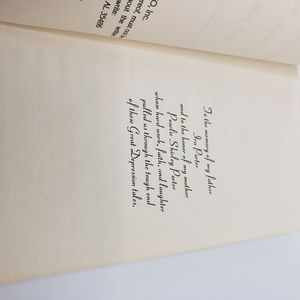 O, Inc.
AL 35486
To the memory of my father
Ira Porter
and to the honor of my mother
Pearlie Shirley Porter
whose hard work, faith, and laughter
pulled us through the tough end
of these Great Depression tales.